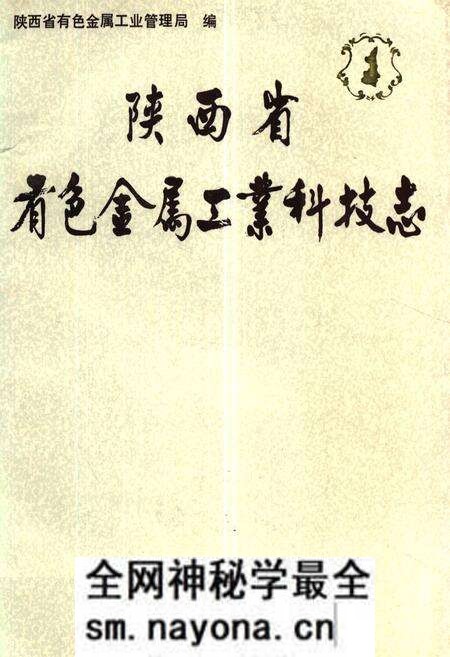 陕西省有色金属工业管理局 编
陕西省
有色金属工業科技志
全网神秘学最全
sm.nayona.cn